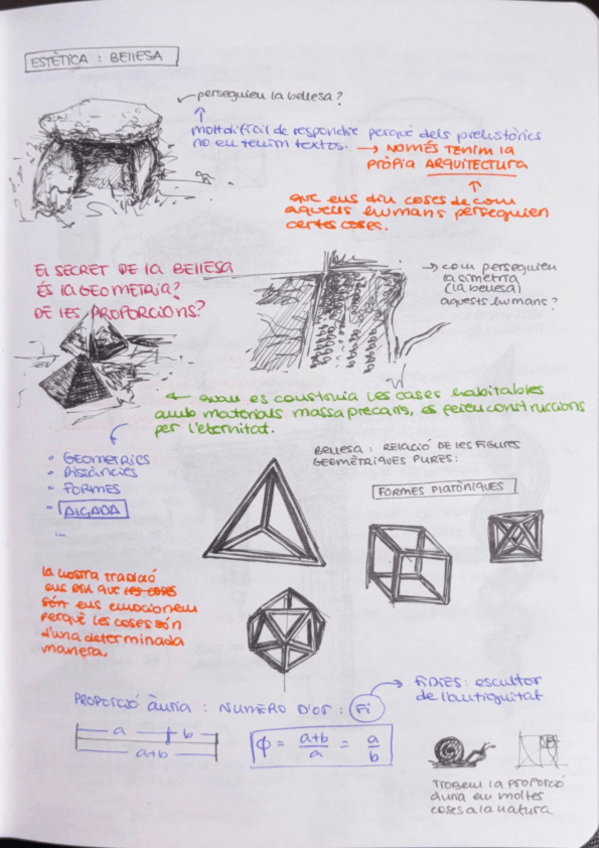 ESTÈTICA : BELLESA
perseguien la bellesa?
molt difícil de respondre perquè dels prehistòrics
no en tenim textos. → NOMÉS TENIM LA
PRÒPIA ARQUITECTURA
que ens diu coses de com
aquells humans perseguien
certes coses.
El SECRET DE la BELLESA
ÉS la GEOMETRIA?
DE LES PROPORCIONS?
→ com perseguien
la simetria
(la bellesa)
aquests humans?
← quan es construïa les cases habitables
amb materials massa precaris, es feien construccions
per l'eternitat.
• GEOMETRIES
• DISTÀNCIES
• FORMES
• ALÇADA
...
BELLESA : RELACIÓ DE LES FIGURES
GEOMÈTRIQUES PURES:
FORMES PLATÒNIQUES
la nostra tradició
ens diu que les coses
són ens emocionem
perquè les coses són
d'una determinada
manera.
PROPORCIÓ ÀURIA : NUMERO D'OR : Fi
→ FÍDIES: escultor
de l'antiguitat
a b
a+b
ϕ = a+b/a = a/b
TROBEM la PROPORCIÓ
àuria en moltes
coses a la natura